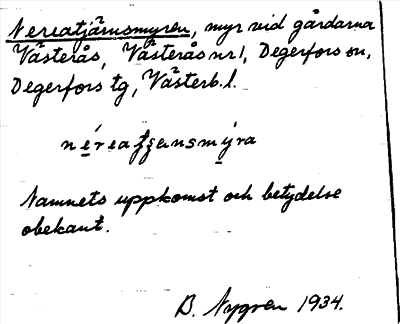 Nereatjärnsmyren, myr vid gårdarna
Västerås, Västerås nr 1, Degerfors sn,
Degerfors tg, Västerb. l.
Namnets uppkomst och betydelse
obekant.
B. Nygren 1934.